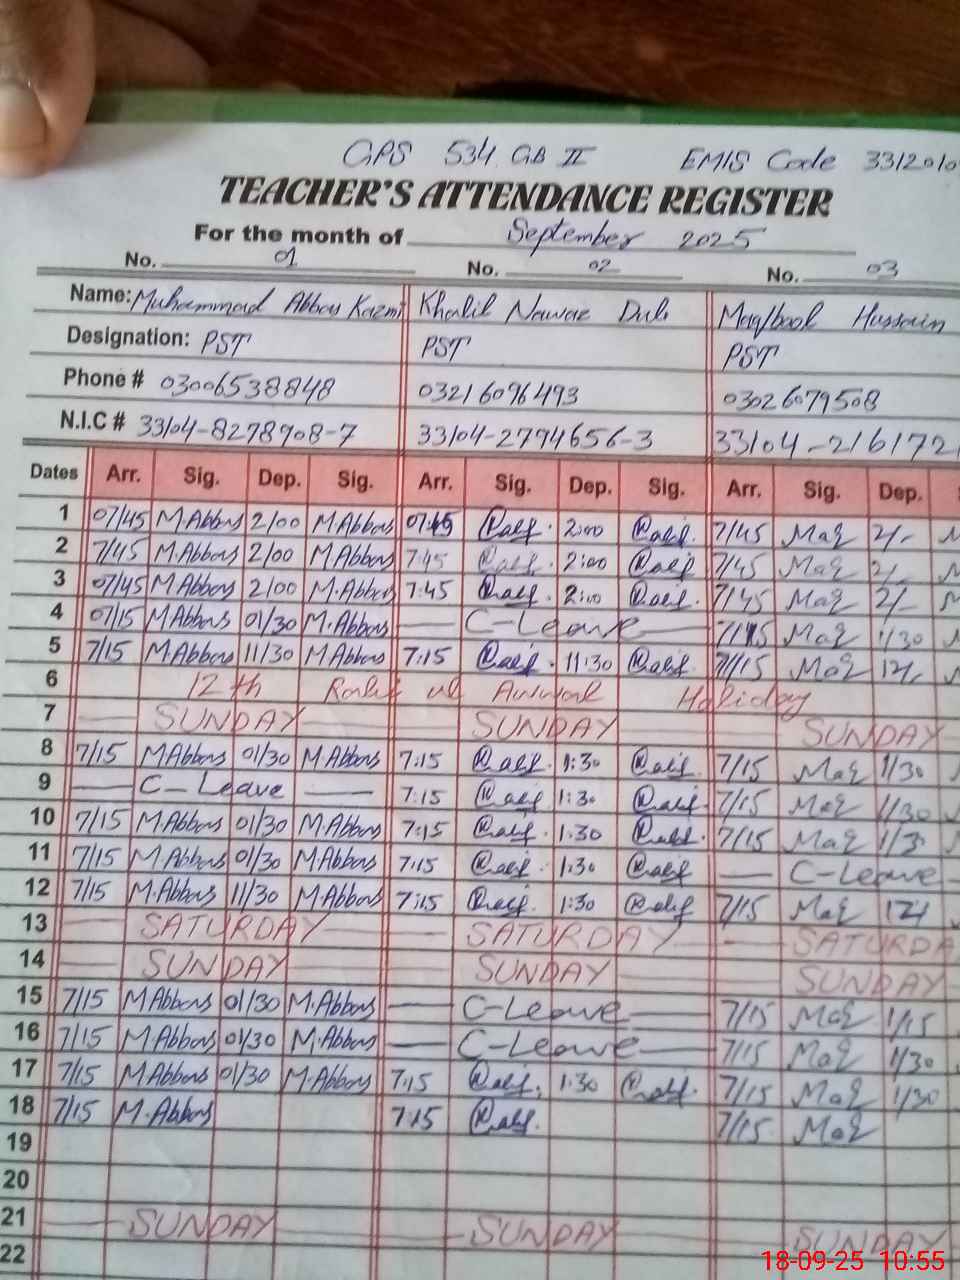 GPS 534 GB II EMIS Code 3312010
TEACHER'S ATTENDANCE REGISTER
For the month of September 2025
No. 01 No. 02 No. 03
Name: Muhammad Abbas Kazmi Khalil Nawaz Maqbool Hussain
Designation: PST PST PST
Phone # 03006538848 03216096493 03026079508
N.I.C # 33104-8278908-7 33104-2794656-3 33104-216172
Dates Arr. Sig. Dep. Sig. Arr. Sig. Dep. Sig. Arr. Sig. Dep.
1 07/45 M.Abbas 2/00 M.Abbas 07:45 2:00 7/45 Maq 2/-
2 7/45 M.Abbas 2/00 M.Abbas 7:45 2:00 7/45 Maq 2/-
3 07/45 M.Abbas 2/00 M.Abbas 7:45 2:00 7/45 Maq 2/-
4 07/15 M.Abbas 01/30 M.Abbas C-Leave 7/15 Maq 1/30
5 7/15 M.Abbas 11/30 M.Abbas 7:15 11:30 7/15 Maq 12/-
6 12th Rabi ul Awwal Holiday
7 SUNDAY SUNDAY SUNDAY
8 7/15 M.Abbas 01/30 M.Abbas 7:15 1:30 7/15 Maq 1/30
9 C-Leave 7:15 1:30 7/15 Maq 1/30
10 7/15 M.Abbas 01/30 M.Abbas 7:15 1:30 7/15 Maq 1/3
11 7/15 M.Abbas 01/30 M.Abbas 7:15 1:30 C-Leave
12 7/15 M.Abbas 11/30 M.Abbas 7:15 1:30 7/15 Maq
13 SATURDAY SATURDAY SATURDA
14 SUNDAY SUNDAY SUNDAY
15 7/15 M.Abbas 01/30 M.Abbas C-Leave 7/15 Maq 1/15
16 7/15 M.Abbas 01/30 M.Abbas C-Leave 7/15 Maq 1/30
17 7/15 M.Abbas 01/30 M.Abbas 7:15 1:30 7/15 Maq 1/30
18 7/15 M.Abbas 7:15 7/15 Maq
19
20
21 SUNDAY SUNDAY SUNDAY
22
18-09-25 10:55